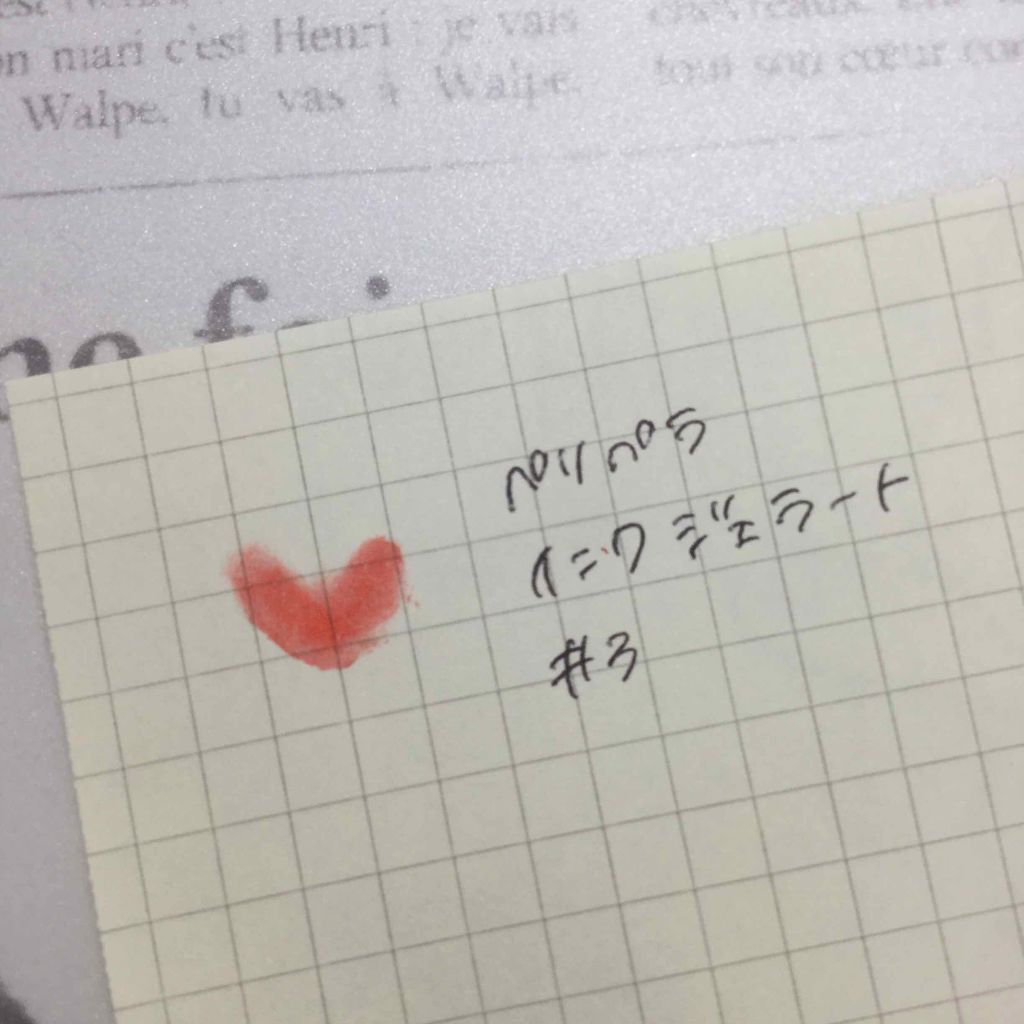 on mari c'est Henri : je vais
Walpe, tu vas à Walpe.
chevreaux.
tout son cœur
ペリペラ
インク ジェラート
#3